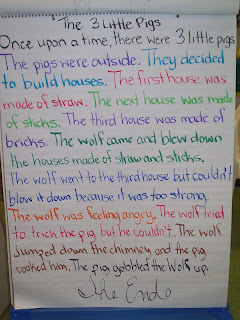 The 3 Little Pigs
Once upon a time, there were 3 little pigs
The pigs were outside. They decided
to build houses. The first house was
made of straw. The next house was made
of sticks. The third house was made of
bricks. The wolf came and blew down
the houses made of straw and sticks.
The wolf went to the third house but couldn't
blow it down because it was too strong.
The wolf was feeling angry. The wolf tried
to trick the pig but he couldn't. The wolf
jumped down the chimney and the pig
cooked him. The pig gobbled the Wolf up.
The End